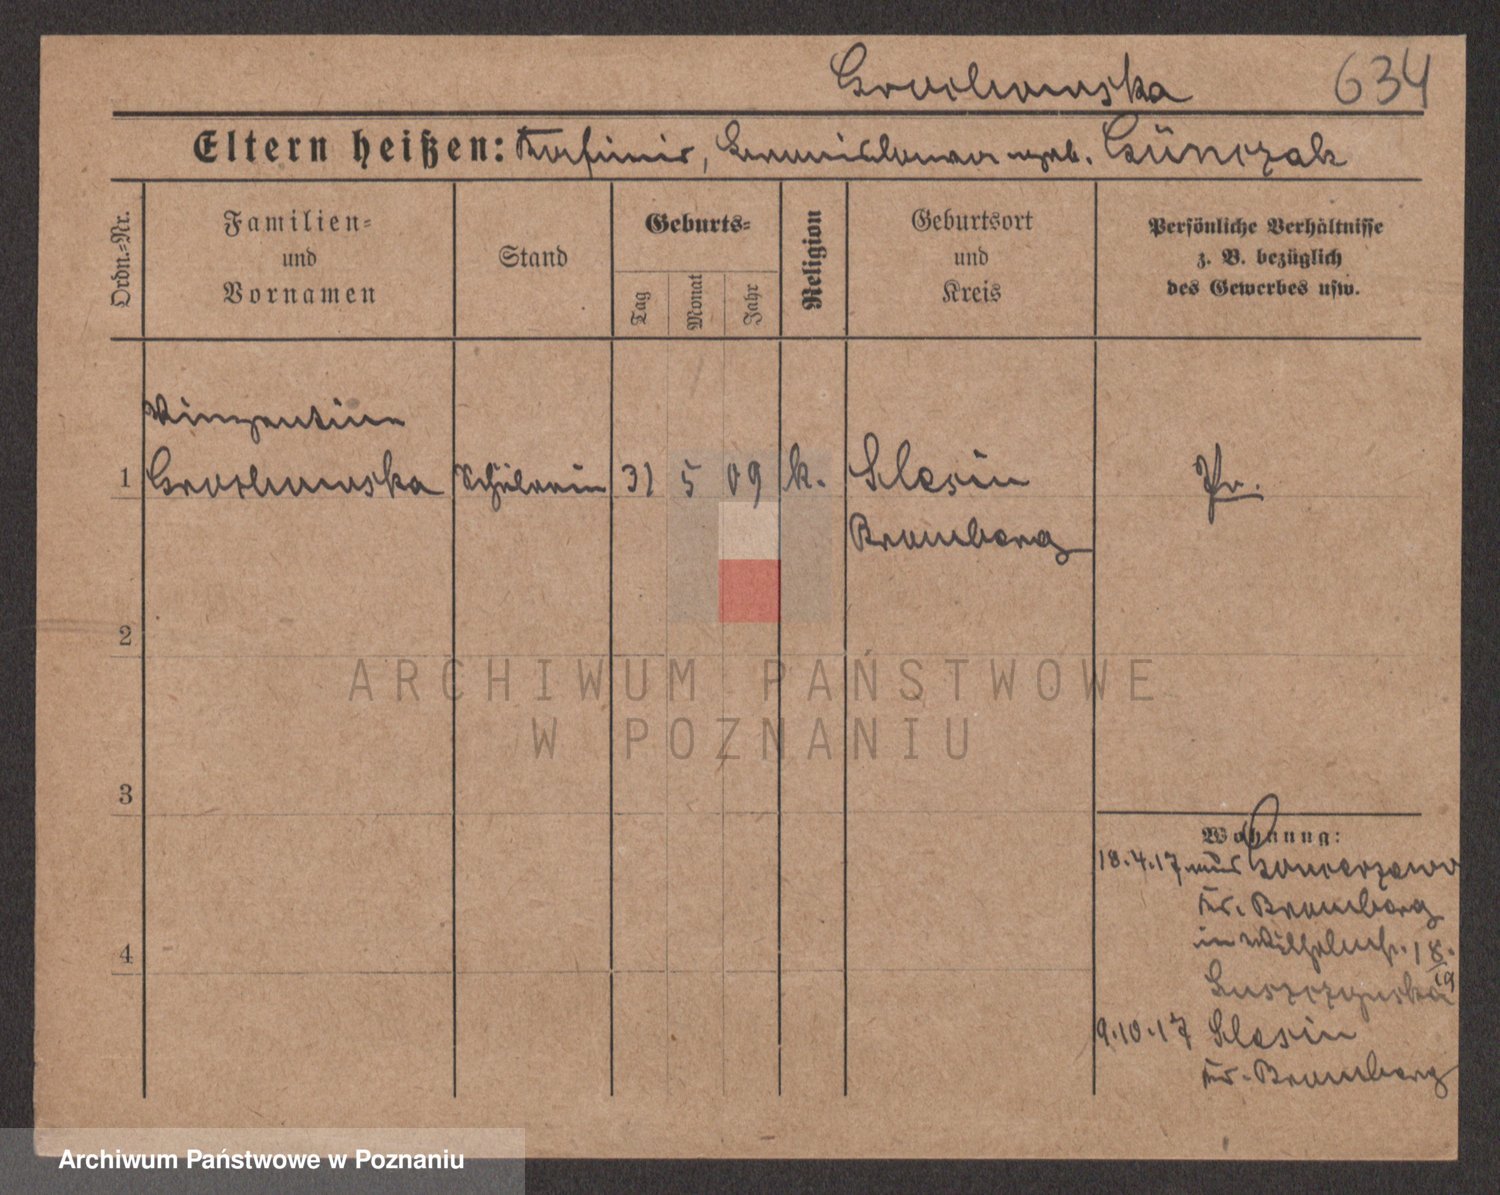 Grochowska 634
Eltern heißen: Kasimir, Bronislawa geb. Günczak
Ordn.-Nr.
Familien-
und
Vornamen
Stand
Geburts-
Tag
Monat
Jahr
Religion
Geburtsort
und
Kreis
Persönliche Verhältnisse
z. B. bezüglich
des Gewerbes usw.
Vinzentine
1 Grochowska Schülerin 31 5 09 k. Slesin Pr.
Bromberg
2
3
4
Wohnung:
18.4.17 aus Goncerzewo
Kr. Bromberg
in Wilhelmstr. 18.
19
9.10.17 Slesin
Kr. Bromberg
ARCHIWUM PAŃSTWOWE
W POZNANIU
Archiwum Państwowe w Poznaniu